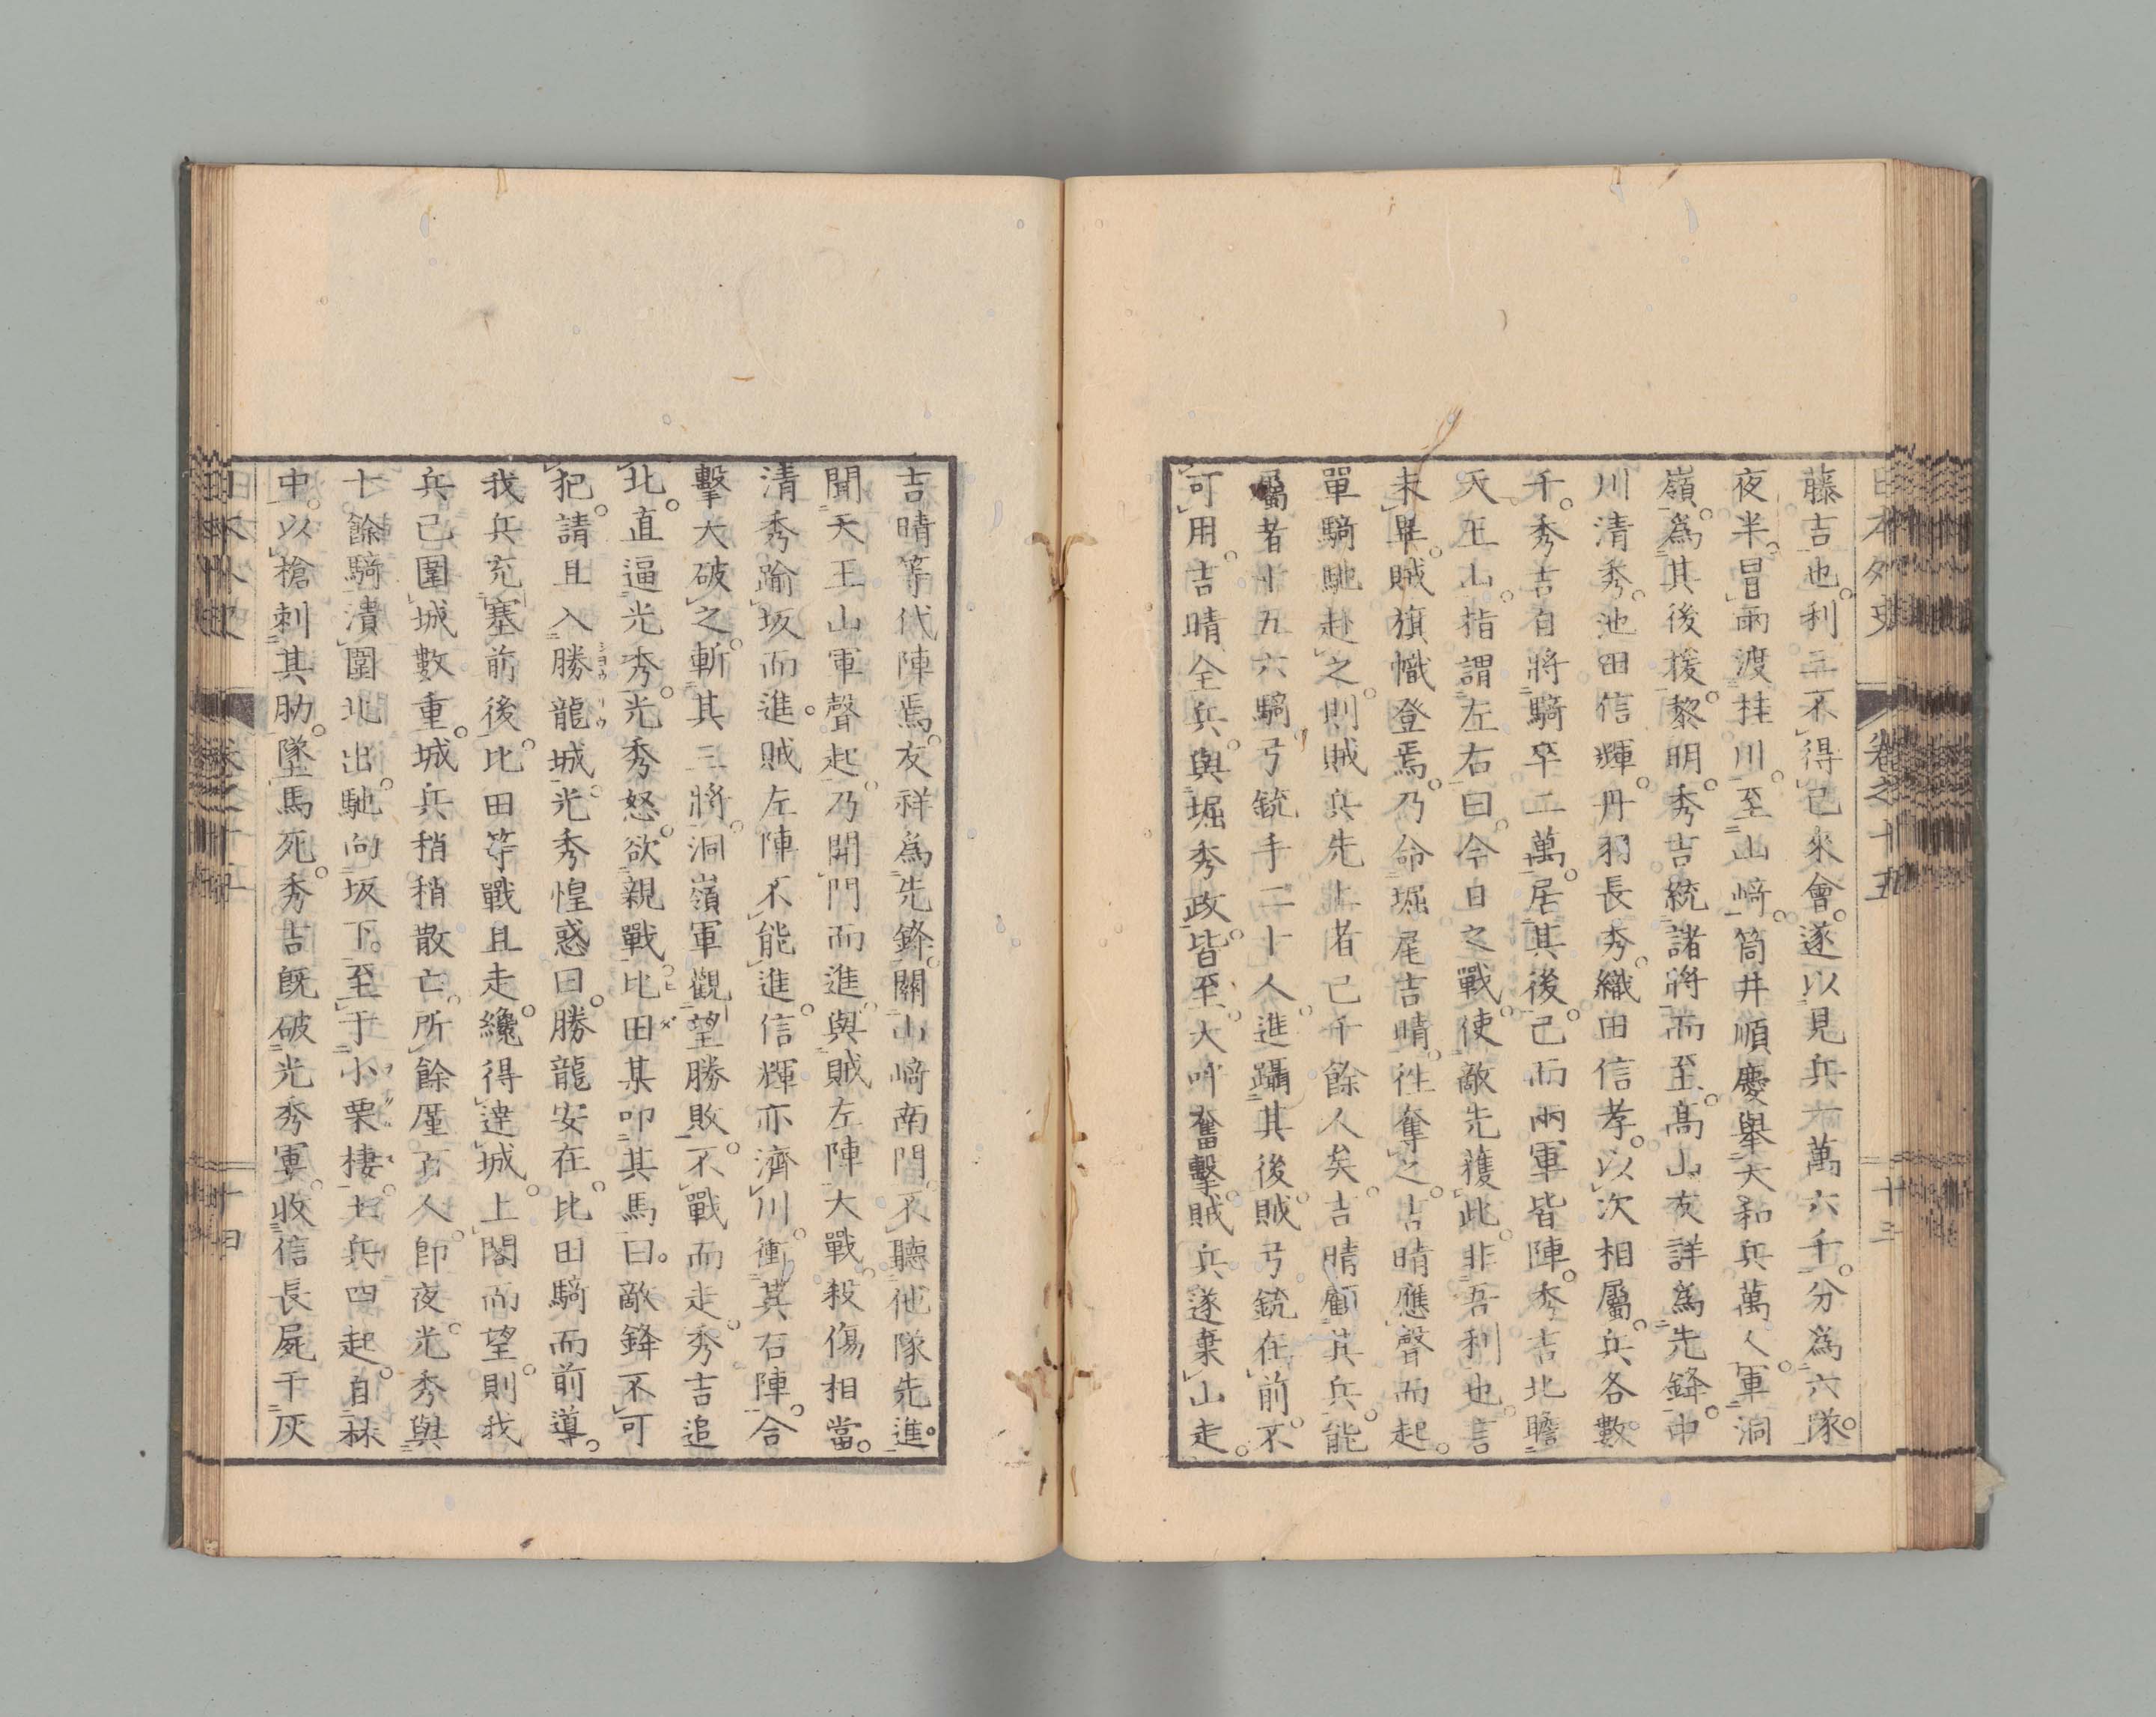 日本外史 卷之十五 十三
藤吉也。利三不得已來會。遂以見兵六萬六千。分爲六隊。
夜半。冒雨渡桂川。至山﨑。筒井順慶舉大和兵萬人。軍洞
嶺。爲其後援。黎明。秀吉統諸將而至。高山友詳爲先鋒。中
川清秀。池田信輝。丹羽長秀。織田信孝。以次相屬。兵各數
千。秀吉自將騎卒二萬。居其後。已而兩軍皆陣。秀吉北瞻
天王山。指謂左右曰。今日之戰。使敵先獲此。非吾利也。言
未畢。賊旗幟登焉。乃命堀尾吉晴。往奪之。吉晴應聲而起。
單騎馳赴之。則賊兵先上者已千餘人矣。吉晴顧其兵。能
屬者十五六騎。弓銃手二十人。進躡其後。賊弓銃在前。不
可用。吉晴全兵。與堀秀政皆至。大呼奮擊。賊兵遂棄山走。
吉晴等代陣焉。友祥爲先鋒。關山﨑南門。不聽他隊先進。
聞天王山軍聲起。乃開門而進。與賊左陣大戰。殺傷相當。
清秀踰坂而進。賊左陣不能進。信輝亦濟川。衝其右陣。合
擊大破之。斬其三將。洞嶺軍觀望勝敗。不戰而走。秀吉追
北。直逼光秀。光秀怒。欲親戰。比田某叩其馬曰。敵鋒不可
犯。請且入勝龍城。光秀惶惑曰。勝龍安在。比田騎而前導。
我兵充塞前後。比田等戰且走。纔得達城。上閣而望。則我
兵已圍城數重。城兵稍稍散亡。所餘厪百人。卽夜。光秀與
十餘騎潰圍北出。馳向坂下。至于小栗棲。土兵四起。自林
中。以槍刺其肋。墜馬死。秀吉既破光秀軍。收信長屍于灰